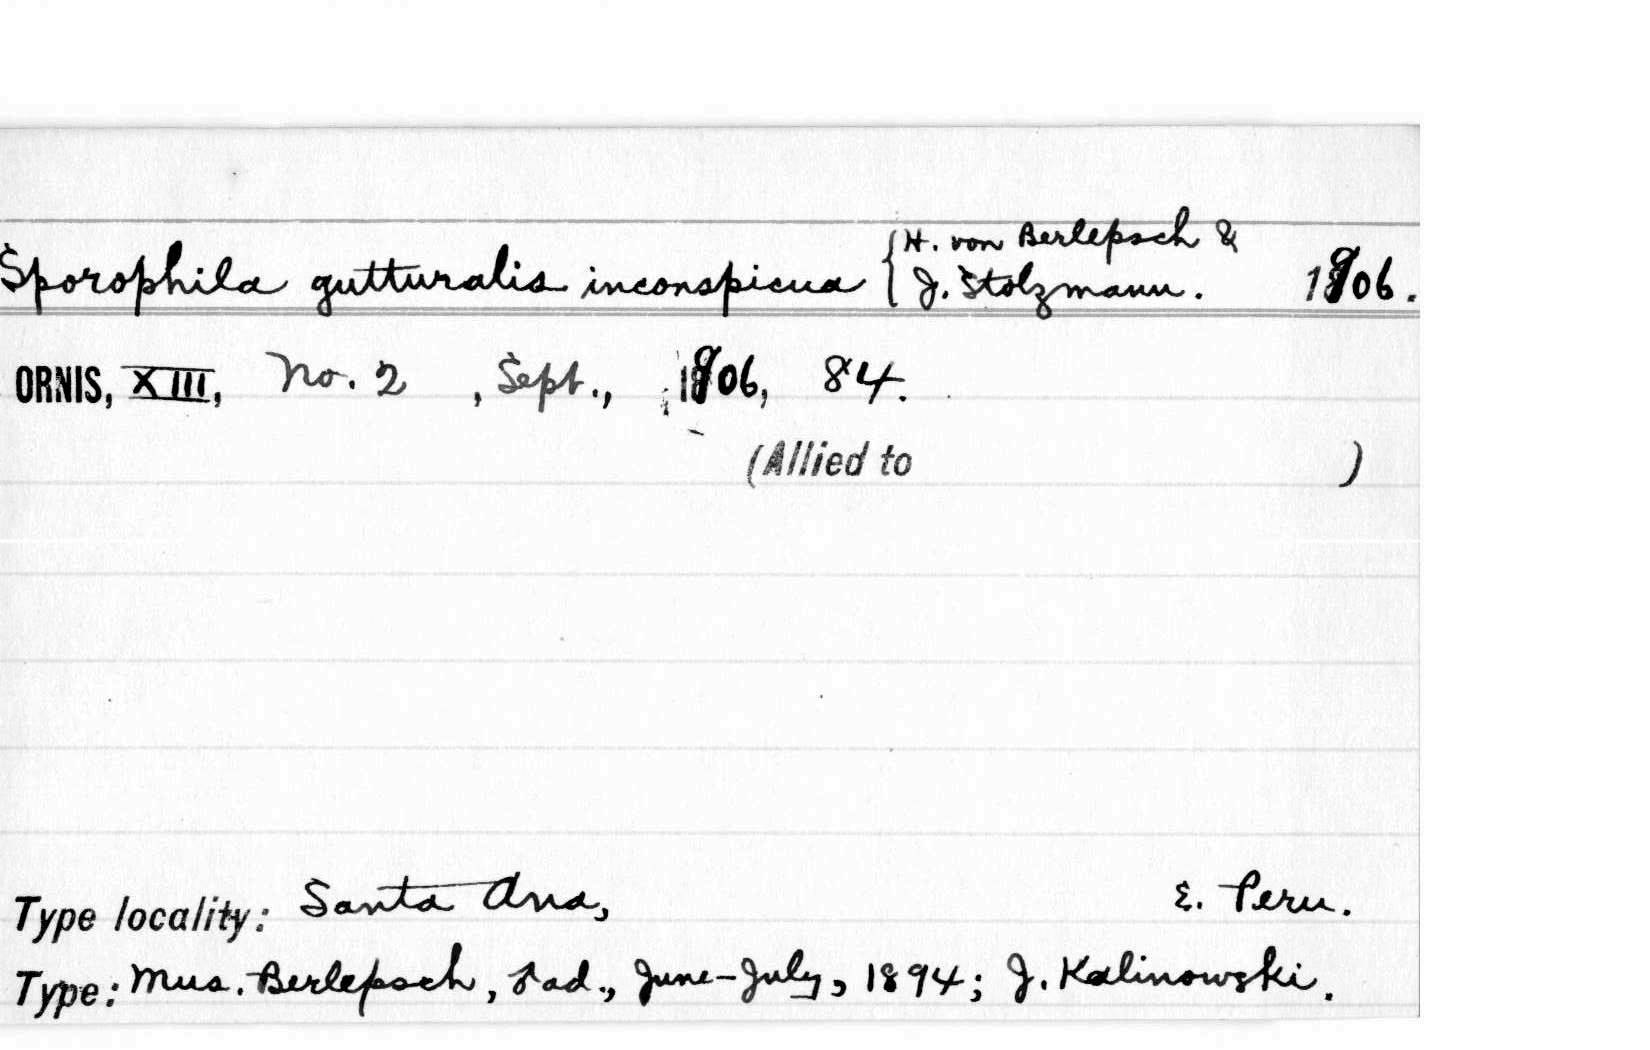 Sporophila gutturalis inconspicua { H. von Berlepsch &
J. Stolzmann. 1906.
ORNIS, XIII, No. 2 , Sept., 1906, 84.
(Allied to )
Type locality: Santa Ana, E. Peru.
Type: Mus. Berlepsch, ♂ad., June-July, 1894; J. Kalinowski.